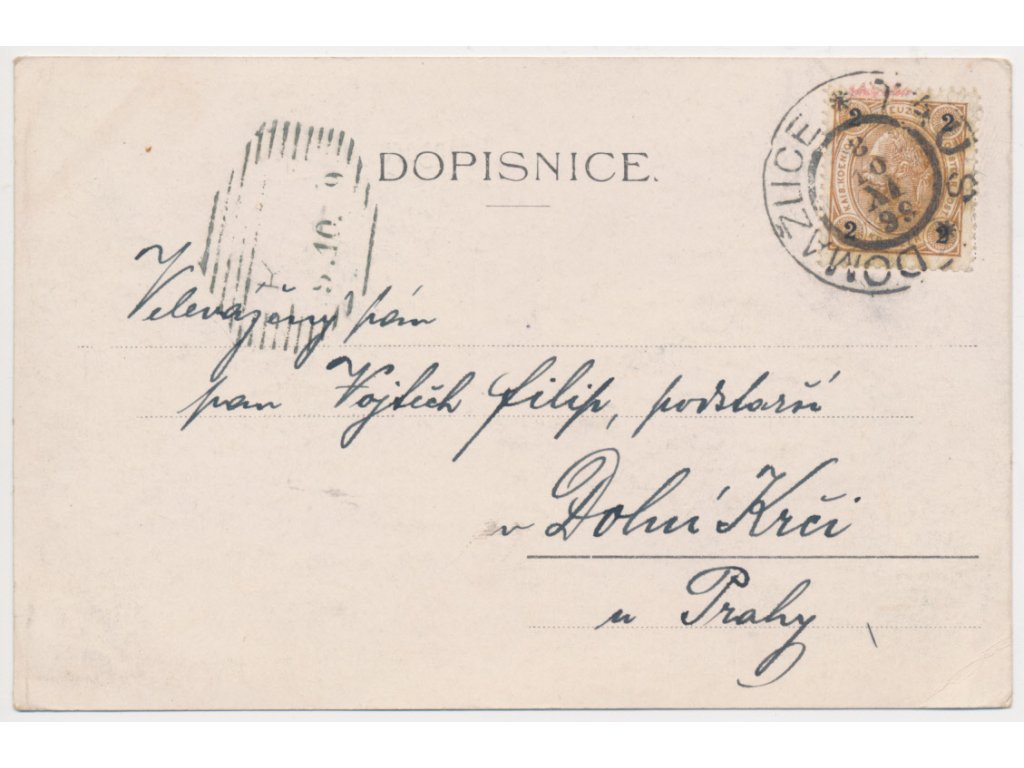 DOPISNICE.
DOMAŽLICE * TAUS *
8
10
XI
98
2
2
2
2
Velevážený pán
pan Vojtěch Filip, podstarší
v Dolní Krči
u Prahy